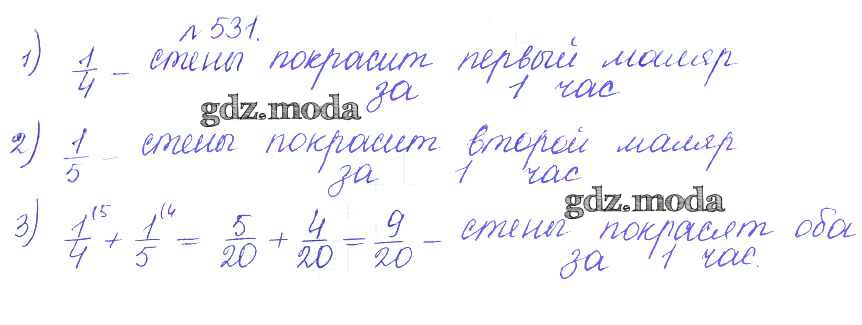 № 531.
1) 1/4 – стены покрасит первый маляр
за 1 час
gdz.moda
2) 1/5 – стены покрасит второй маляр
за 1 час
gdz.moda
3) 1/4 (5 + 1/5 (4 = 5/20 + 4/20 = 9/20 – стены покрасят оба
за 1 час.